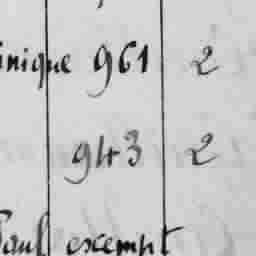 inique 961 2
943 2
Paul exempt